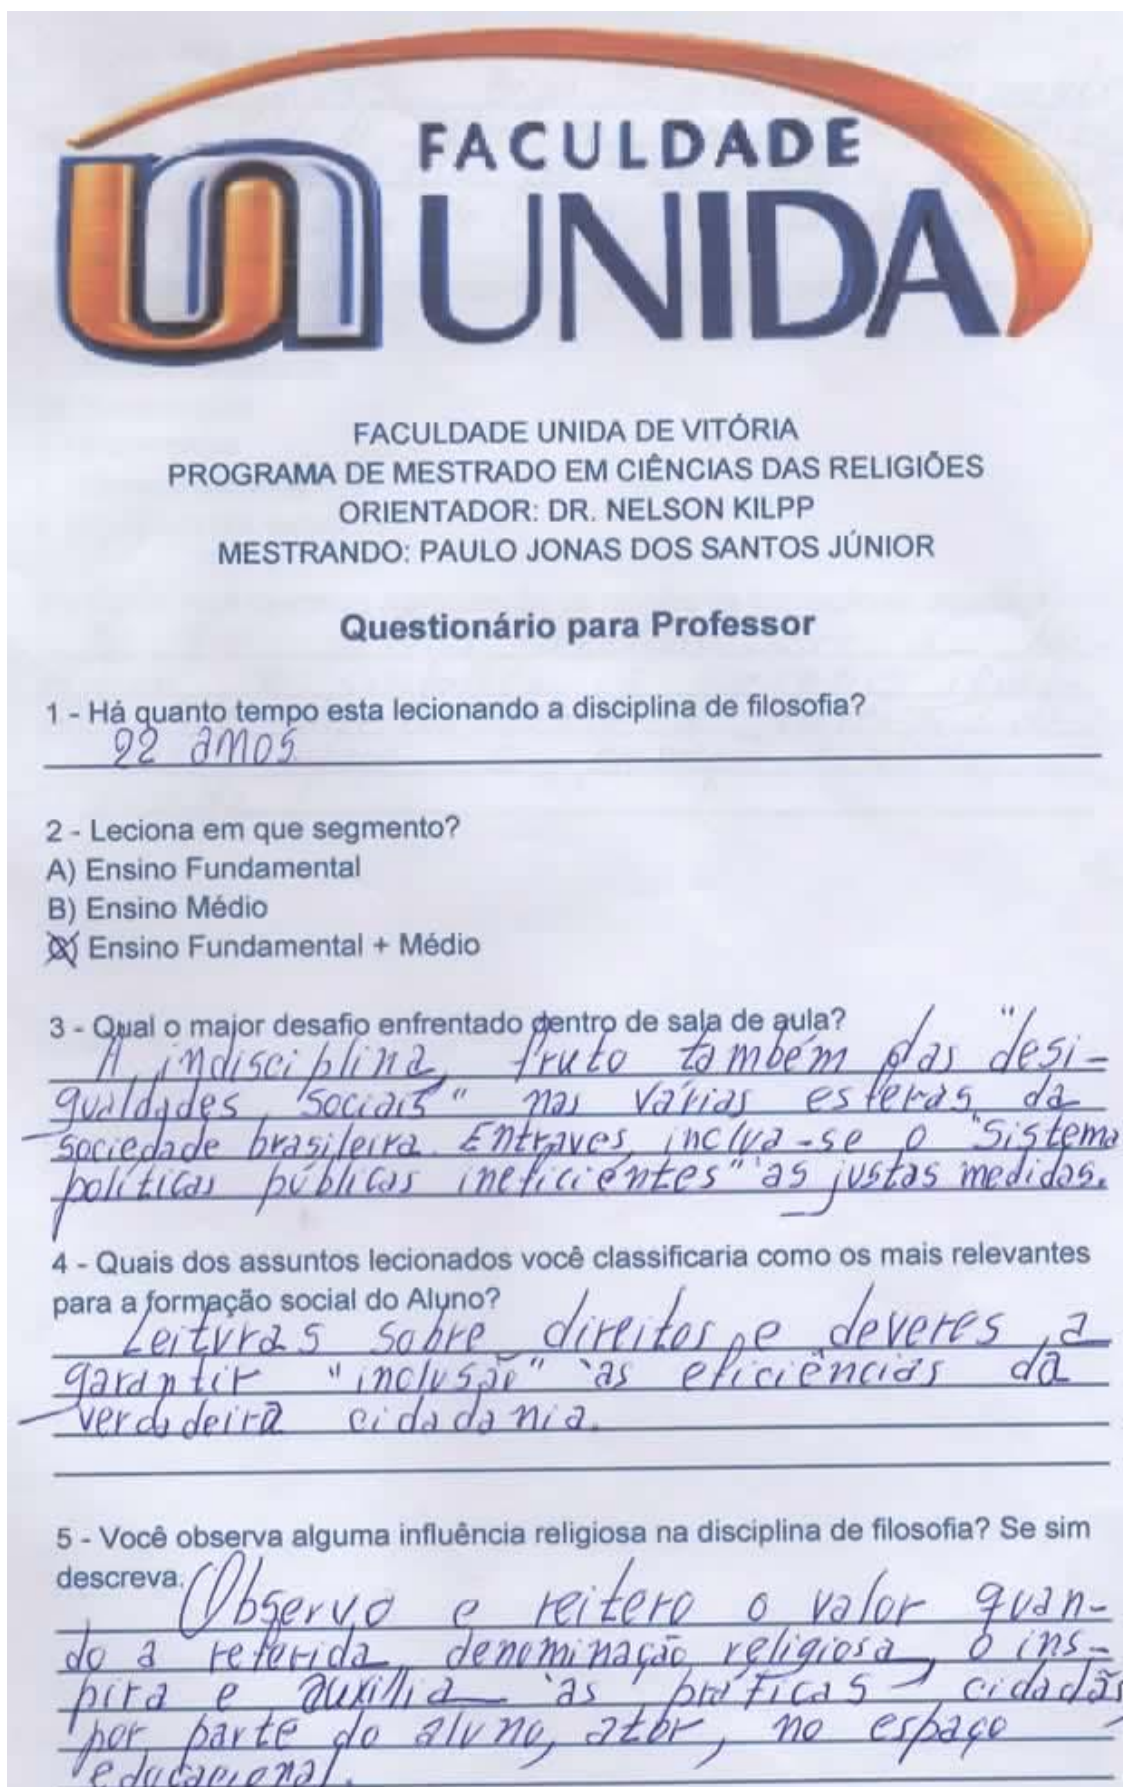 FACULDADE
UNIDA
FACULDADE UNIDA DE VITÓRIA
PROGRAMA DE MESTRADO EM CIÊNCIAS DAS RELIGIÕES
ORIENTADOR: DR. NELSON KILPP
MESTRANDO: PAULO JONAS DOS SANTOS JÚNIOR
Questionário para Professor
1 - Há quanto tempo esta lecionando a disciplina de filosofia?
22 anos.
2 - Leciona em que segmento?
A) Ensino Fundamental
B) Ensino Médio
Ensino Fundamental + Médio
3 - Qual o maior desafio enfrentado dentro de sala de aula?
A indisciplina, fruto também das "desi-
gualdades sociais" nas várias esferas da
sociedade brasileira. Entraves, inclua-se o "Sistema
políticas públicas ineficientes" às justas medidas.
4 - Quais dos assuntos lecionados você classificaria como os mais relevantes
para a formação social do Aluno?
Leituras sobre direitos e deveres, a
garantir "inclusão" às eficiências da
verdadeira cidadania.
5 - Você observa alguma influência religiosa na disciplina de filosofia? Se sim
descreva. Observo e reitero o valor quan-
do a referida denominação religiosa, o ins-
pira e auxilia às práticas cidadãs
por parte do aluno, ator, no espaço
educacional.